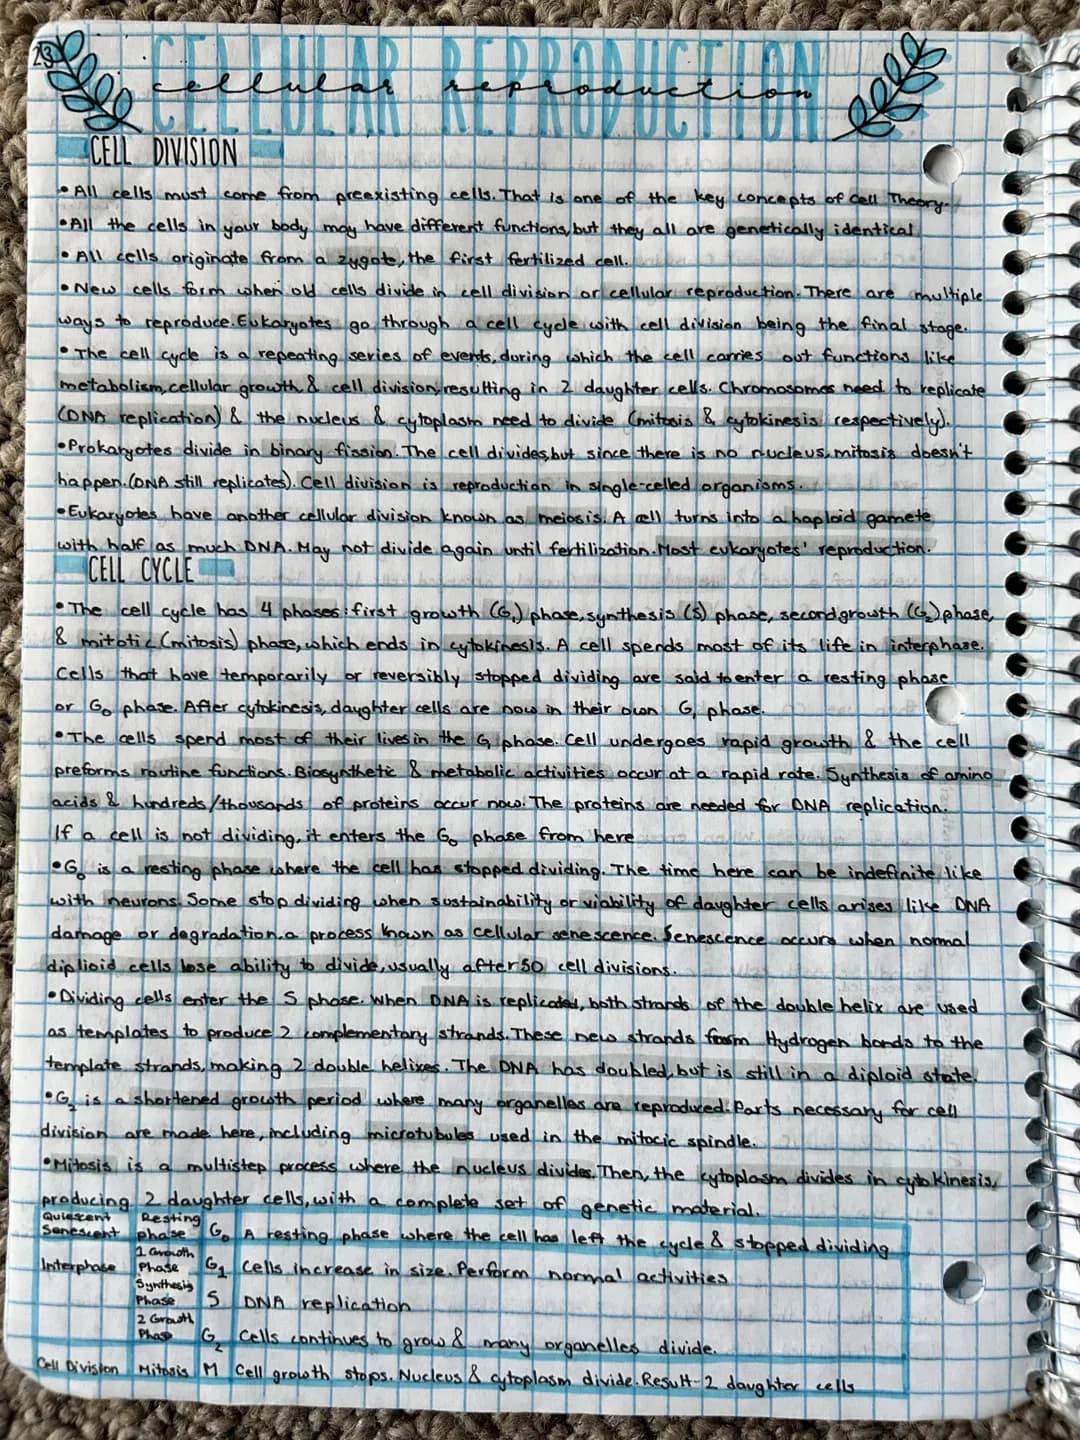 23
CELLULAR REPRODUCTION
cellular reproduction
CELL DIVISION
•All cells must come from preexisting cells. That is one of the key concepts of Cell Theory.
•All the cells in your body may have different functions, but they all are genetically identical
•All cells originate from a zygote, the first fertilized cell.
•New cells form when old cells divide in cell division or cellular reproduction. There are multiple
ways to reproduce. Eukaryotes go through a cell cycle with cell division being the final stage.
•The cell cycle is a repeating series of events, during which the cell carries out functions like
metabolism, cellular growth, & cell division, resulting in 2 daughter cells. Chromosomes need to replicate
(DNA replication) & the nucleus & cytoplasm need to divide (mitosis & cytokinesis respectively).
•Prokaryotes divide in binary fission. The cell divides, but since there is no nucleus, mitosis doesn't
happen. (DNA still replicates). Cell division is reproduction in single-celled organisms.
•Eukaryotes have another cellular division known as meiosis. A cell turns into a haploid gamete
with half as much DNA. May not divide again until fertilization. Most eukaryotes' reproduction.
CELL CYCLE
•The cell cycle has 4 phases: first growth (G₁) phase, synthesis (S) phase, second growth (G₂) phase,
& mitotic (mitosis) phase, which ends in cytokinesis. A cell spends most of its life in interphase.
Cells that have temporarily or reversibly stopped dividing are said to enter a resting phase
or G₀ phase. After cytokinesis, daughter cells are now in their own G₁ phase.
•The cells spend most of their lives in the G₁ phase. Cell undergoes rapid growth & the cell
preforms routine functions. Biosynthetic & metabolic activities occur at a rapid rate. Synthesis of amino
acids & hundreds/thousands of proteins occur now. The proteins are needed for DNA replication.
If a cell is not dividing, it enters the G₀ phase from here
•G₀ is a resting phase where the cell has stopped dividing. The time here can be indefinite like
with neurons. Some stop dividing when sustainability or viability of daughter cells arises like DNA
damage or degradation, a process known as cellular senescence. Senescence occurs when normal
diplioid cells lose ability to divide, usually after 50 cell divisions.
•Dividing cells enter the S phase. When DNA is replicated, both strands of the double helix are used
as templates to produce 2 complementary strands. These new strands form Hydrogen bonds to the
template strands, making 2 double helixes. The DNA has doubled, but is still in a diploid state.
•G₂ is a shortened growth period where many organelles are reproduced. Parts necessary for cell
division are made here, including microtubules used in the mitocic spindle.
•Mitosis is a multistep process where the nucleus divides. Then, the cytoplasm divides in cytokinesis,
producing 2 daughter cells, with a complete set of genetic material.
Quiescent Senescent Resting Phase G₀ A resting phase where the cell has left the cycle & stopped dividing
Interphase 1 Growth Phase G₁ Cells increase in size. Perform normal activities
Synthesis Phase S DNA replication
2 Growth Phase G₂ Cells continues to grow & many organelles divide.
Cell Division Mitosis M Cell growth stops. Nucleus & cytoplasm divide. Result-2 daughter cells